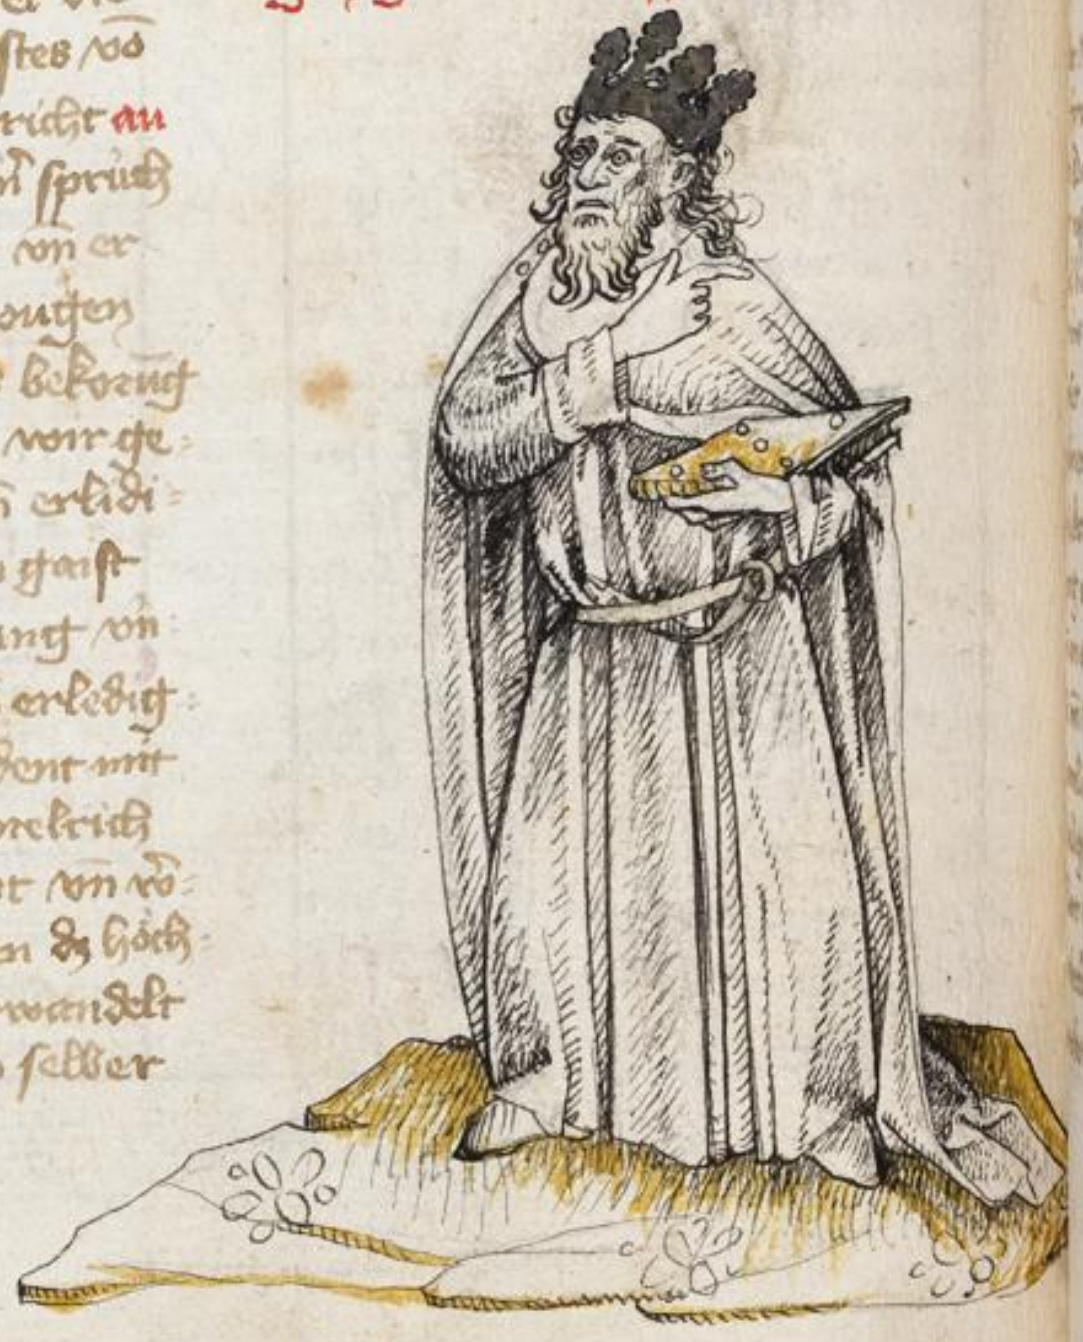 stes vō
richt an
spruch
vn̄ er
ougen
bekorūg
wir ge
erlidi
gaist
ung vn̄
erledig
dent mit
relrich
t vn̄ vō
n dz höch
wandelt
selber